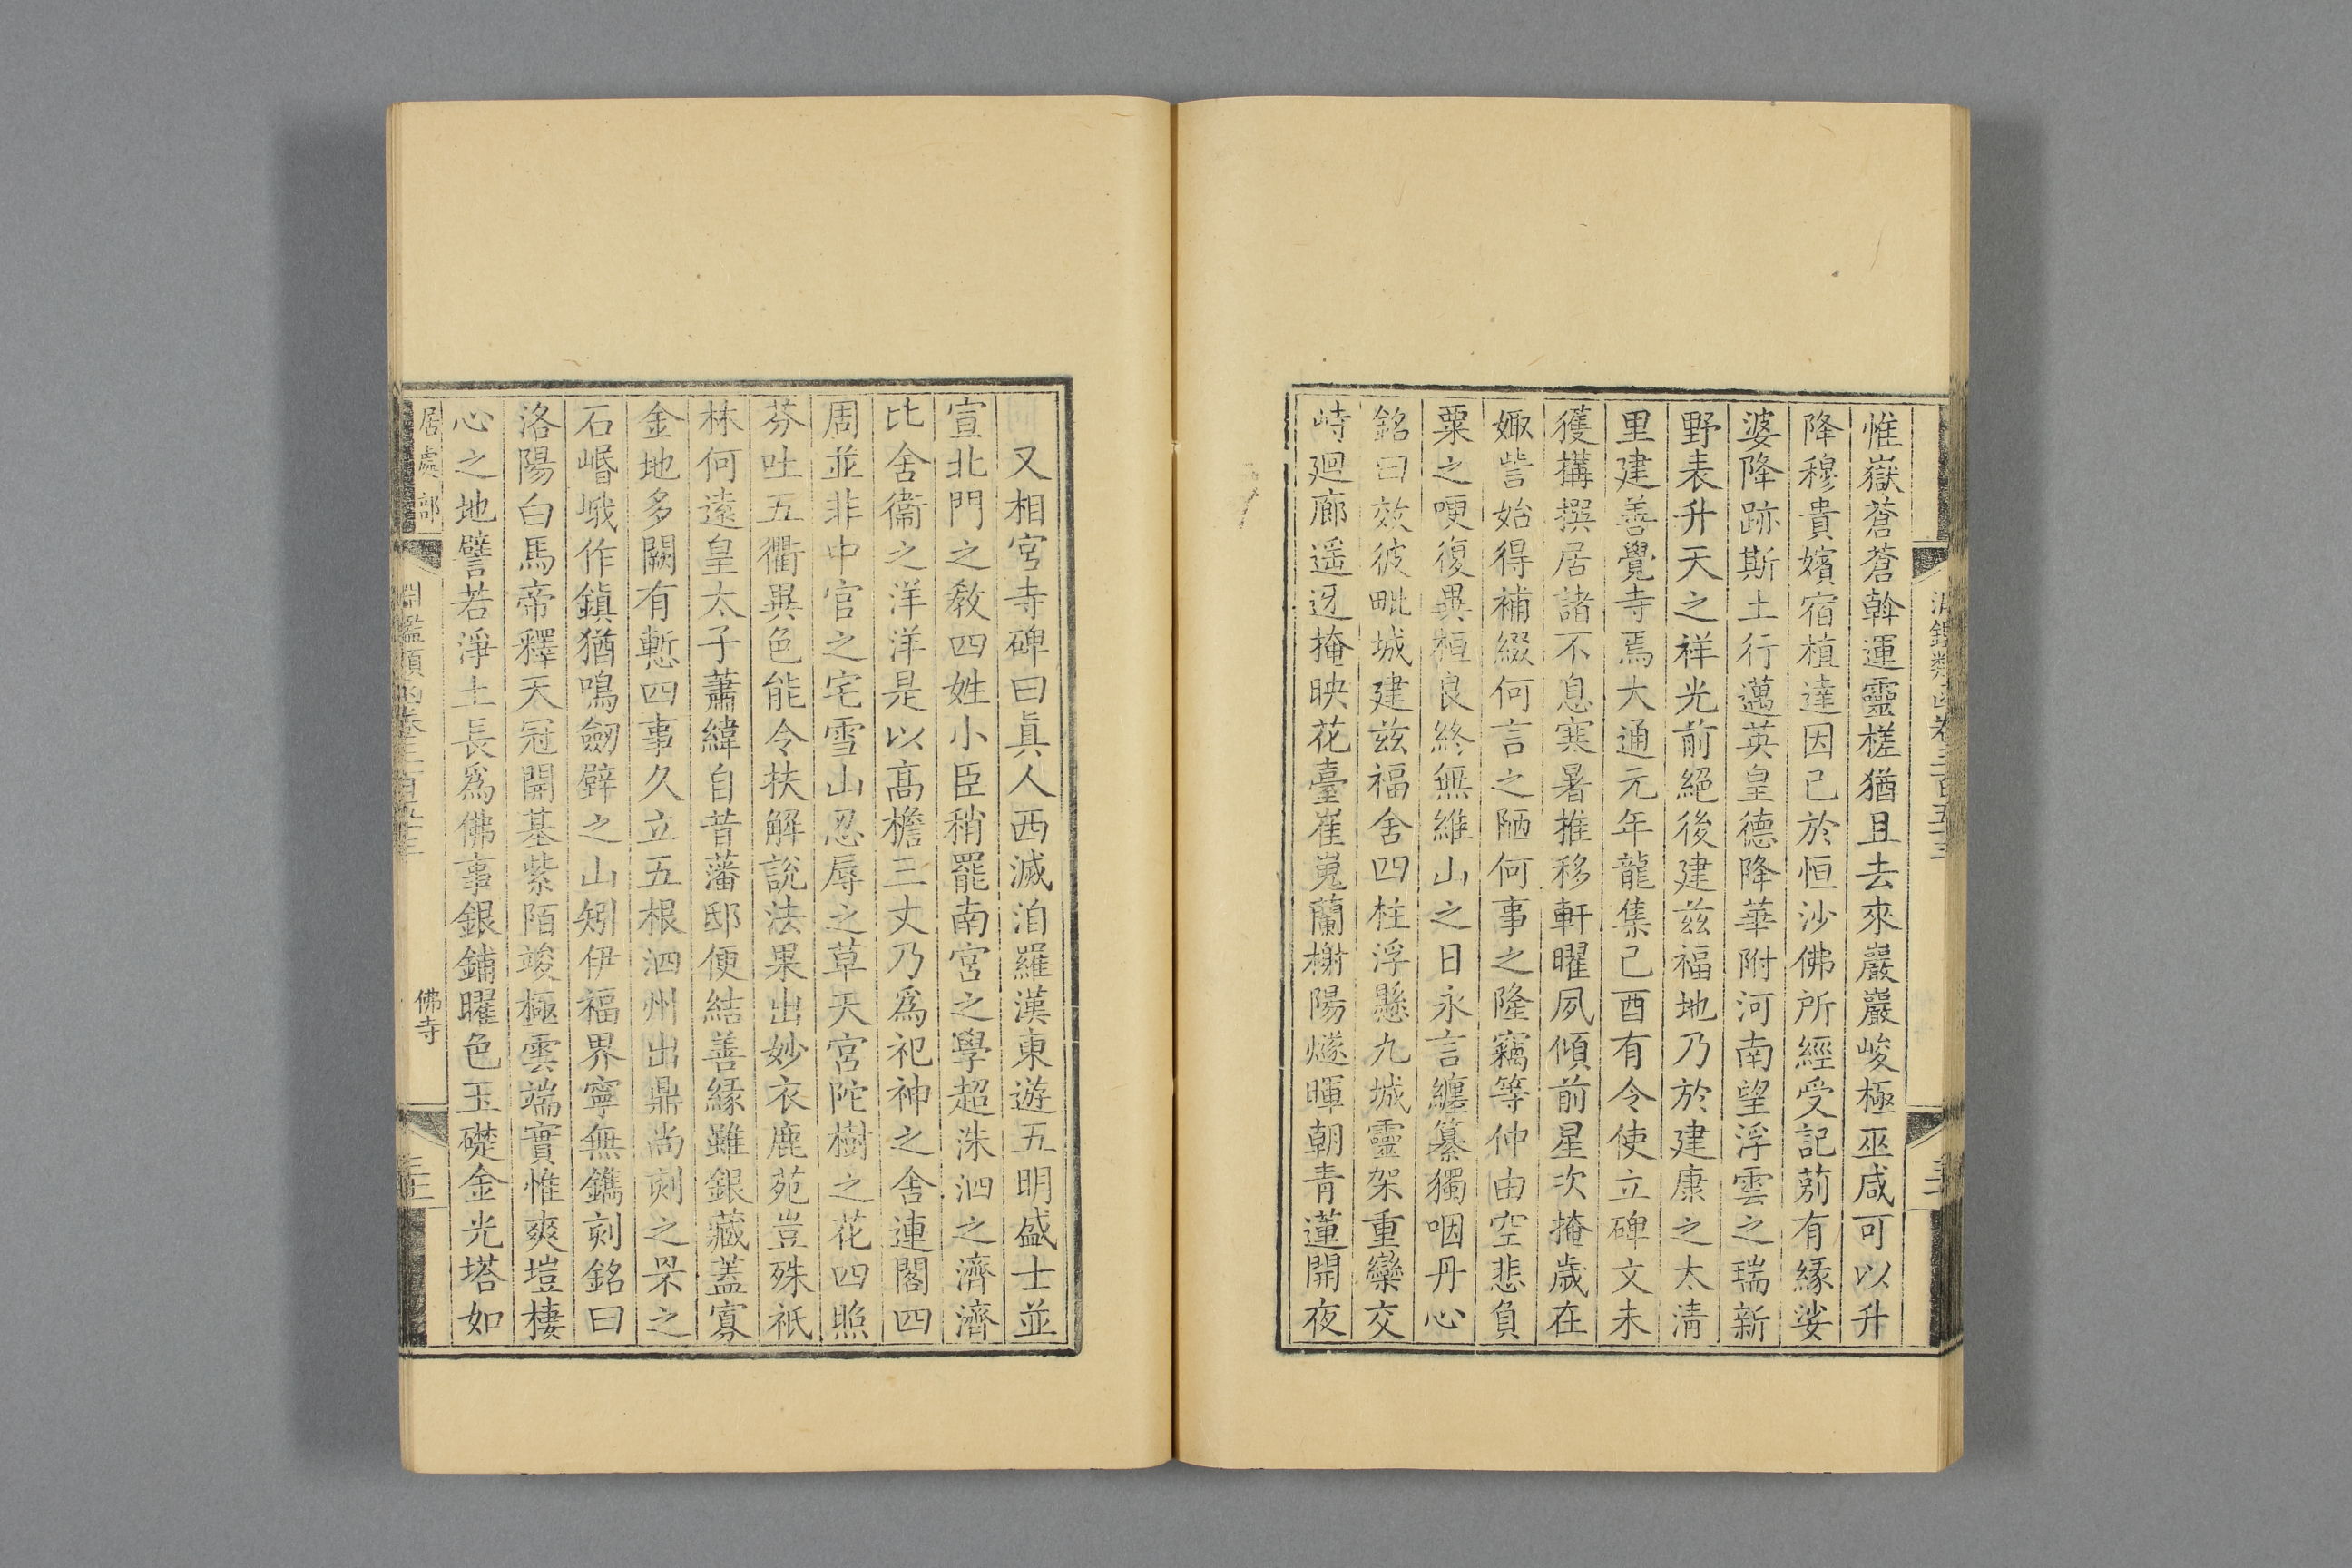 惟嶽蒼蒼斡運靈槎猶且去來巖巖峻極巫咸可以升
降穆貴嬪宿植達因已於恒沙佛所經受記莂有緣娑
婆降跡斯土行邁英皇德降華附河南望浮雲之瑞新
野表升天之祥光前絕後建兹福地乃於建康之太清
里建善覺寺焉大通元年龍集己酉有令使立碑文未
獲搆撰居諸不息寒暑推移軒曜夙傾前星次掩歲在
娵訾始得補綴何言之陋何事之隆竊等仲由空悲負
粟之哽復異桓良終無維山之日永言纏纂獨咽丹心
銘曰效彼毗城建兹福舍四柱浮懸九城靈架重欒交
峙廻廊遥迓掩映花臺崔嵬蘭榭陽燧暉朝青蓮開夜
又相宮寺碑曰眞人西滅洎羅漢東遊五明盛士並
宣北門之教四姓小臣稍罷南宮之學超洙泗之濟濟
比舍衞之洋洋是以高檐三丈乃爲祀神之舍連閣四
周並非中官之宅雪山忍辱之草天宮陀樹之花四照
芬吐五衢異色能令扶解說法果出妙衣鹿苑豈殊祇
林何遠皇太子蕭緯自昔藩邸便結善緣雖銀藏蓋寡
金地多闕有慙四事久立五根泗州出鼎尚刻之罘之
石㟭峨作鎮猶鳴劒壁之山矧伊福界寧無鐫刻銘曰
洛陽白馬帝釋天冠開基紫陌竣極雲端實惟爽塏棲
心之地譬若淨土長爲佛事銀鋪曜色玉礎金光塔如
居處部
淵鑑類函卷三百五十三
佛寺